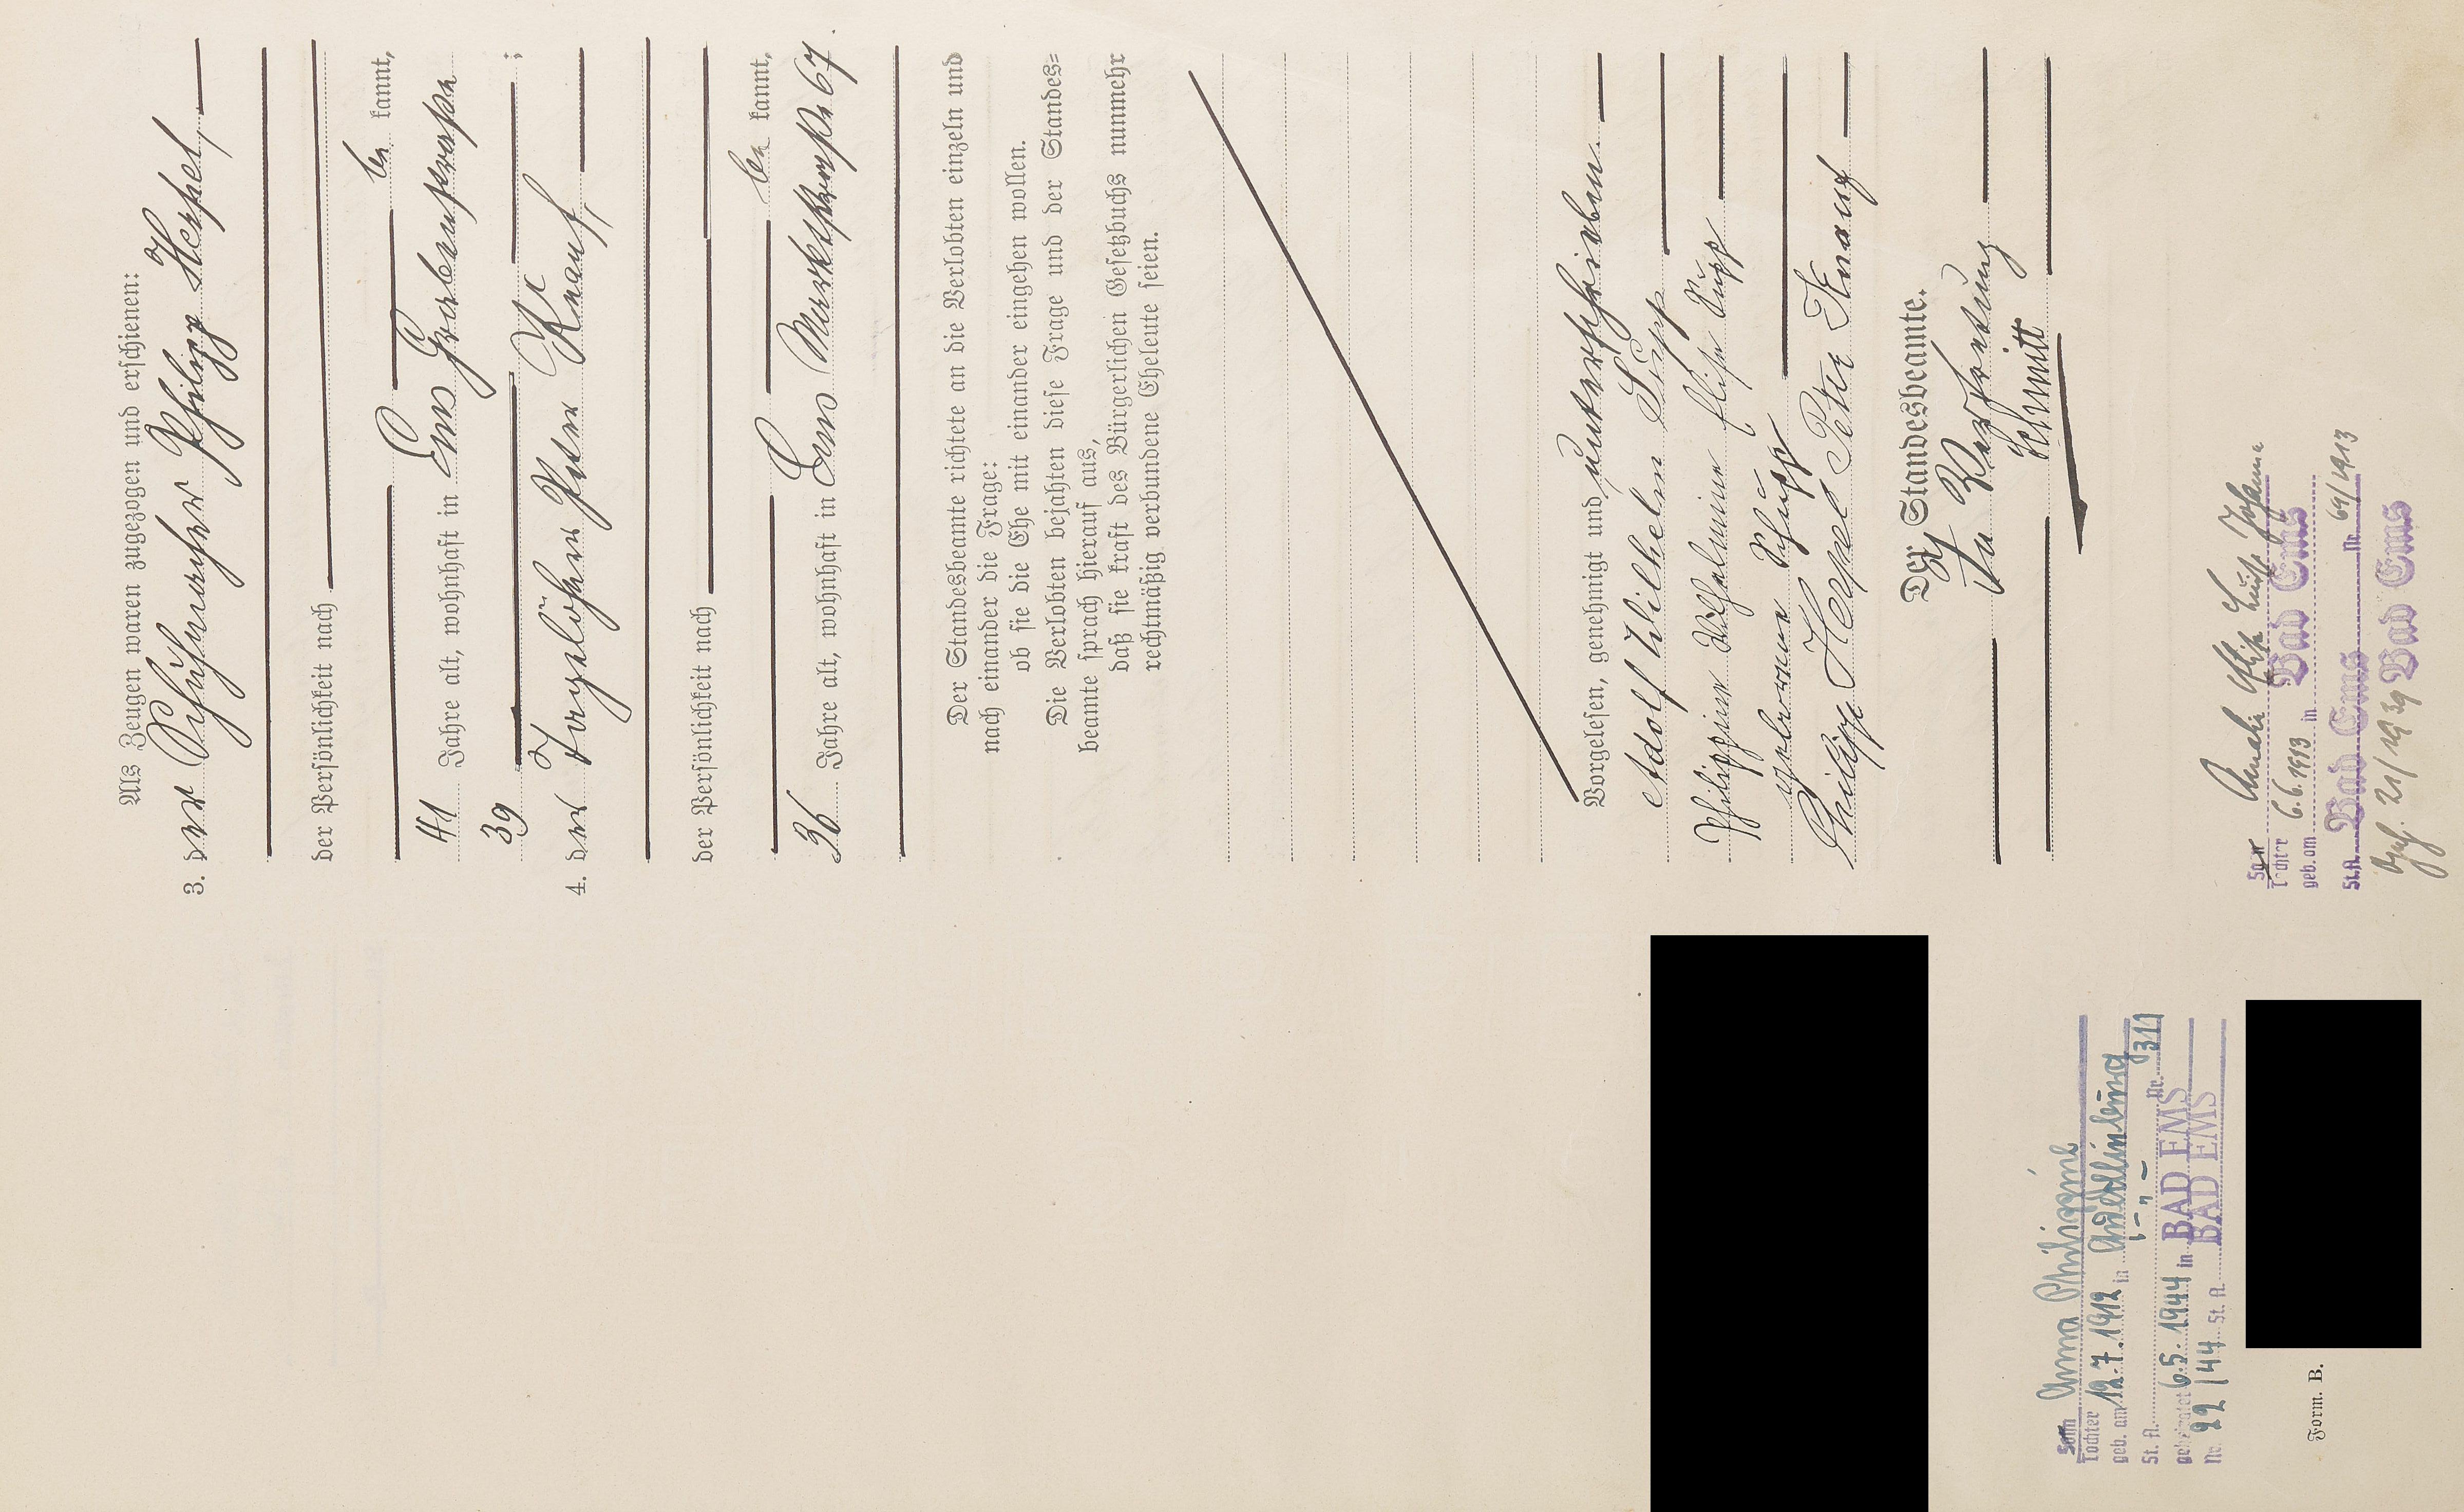 Als Zeugen waren zugezogen und erschienen:
3. der Schuhmacher Philipp Heppel,
der Persönlichkeit nach
be kannt,
41 Jahre alt, wohnhaft in Ems Grabenstraße
39 ;
4. der Tagelöhner Peter Knauf,
der Persönlichkeit nach
be kannt,
36 Jahre alt, wohnhaft in Ems Marktstraße 67.
Der Standesbeamte richtete an die Verlobten einzeln und
nach einander die Frage:
ob sie die Ehe mit einander eingehen wollen.
Die Verlobten bejahten diese Frage und der Standes=
beamte sprach hierauf aus,
daß sie kraft des Bürgerlichen Gesetzbuchs nunmehr
rechtmäßig verbundene Eheleute seien.
Vorgelesen, genehmigt und unterschrieben.
Adolf Wilhelm
Philippine Wilhelmine Elise
geborene Schupp
Philipp Heppel Peter Knauf
Der Standesbeamte.
In Vertretung
Schmitt
Sohn
Tochter Anna Philippine
geb. am 12.7.1912 in
St. A. - " - Nr. 311
geheiratet 6.5.1944 in BAD EMS
Nr. 22/44 St. A. BAD EMS
Form. B.
Sohn
Tochter Amalie Elise Luise Johanna
geb. am 6.6.1913 in Bad Ems
St. A. Bad Ems Nr. 69/1913
21/1939 Bad Ems